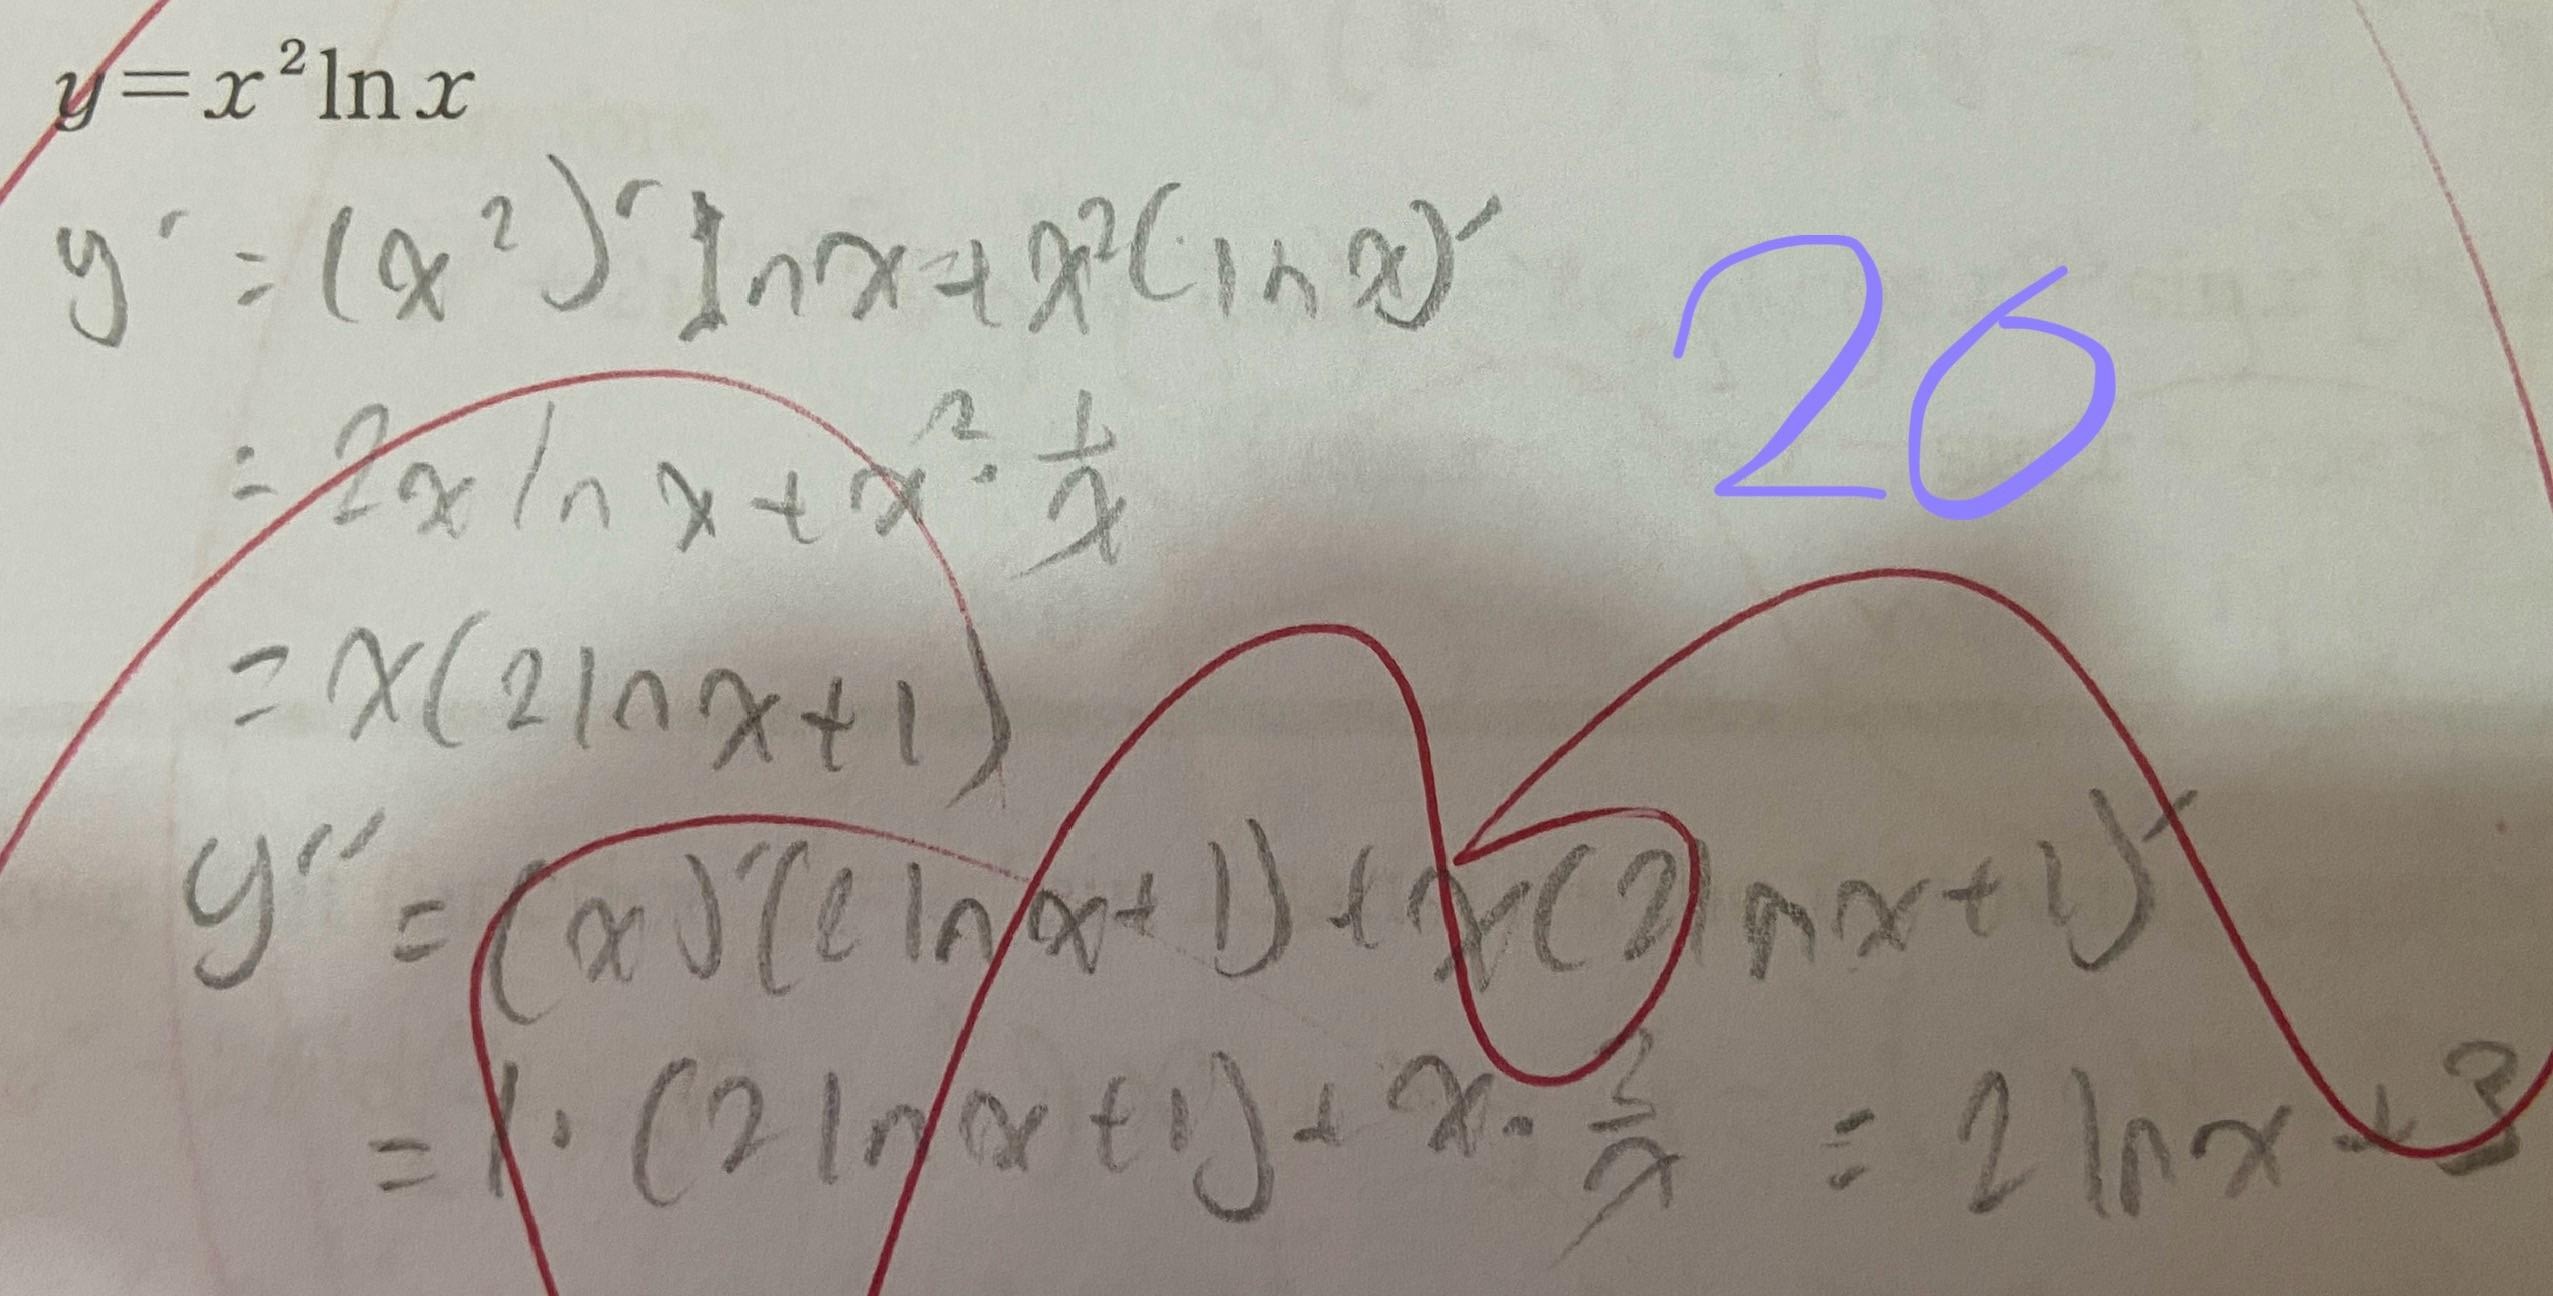 y=x²ln x
y′=(x²)′ln x+x²(ln x)′
20
=2x ln x+x²·1/x
=x(2ln x+1)
y′′=(x)′(2ln x+1)+x(2ln x+1)′
=1·(2ln x+1)+x·2/x=2ln x+3